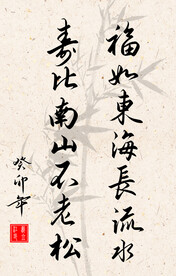 福如東海長流水
壽比南山不老松
癸卯年